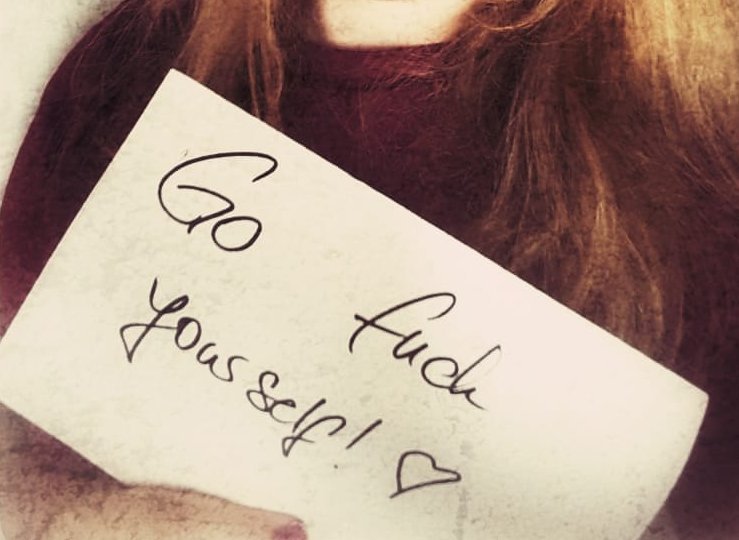 Go fuck
yourself! ♡